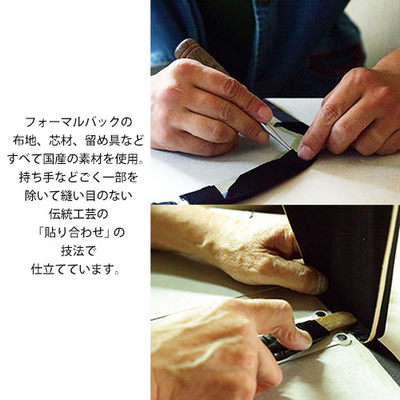 フォーマルバックの
布地、芯材、留め具など
すべて国産の素材を使用。
持ち手などごく一部を
除いて縫い目のない
伝統工芸の
「貼り合わせ」の
技法で
仕立てています。